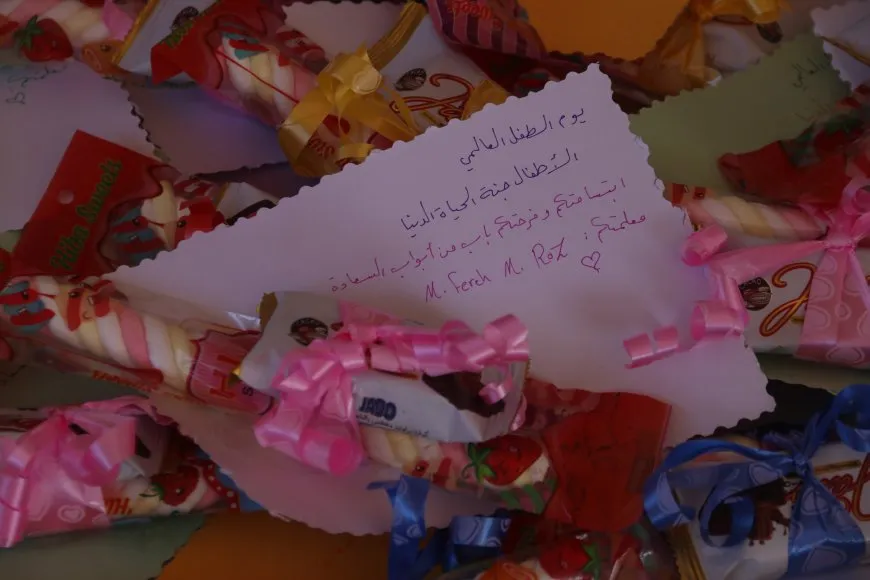 يوم الطفل العالمي
الأطفال جنة الحياة الدنيا
ابتسامتهم وفرحتهم باب من أبواب السعادة
معلمتهم :
M. Ferah M. Roz